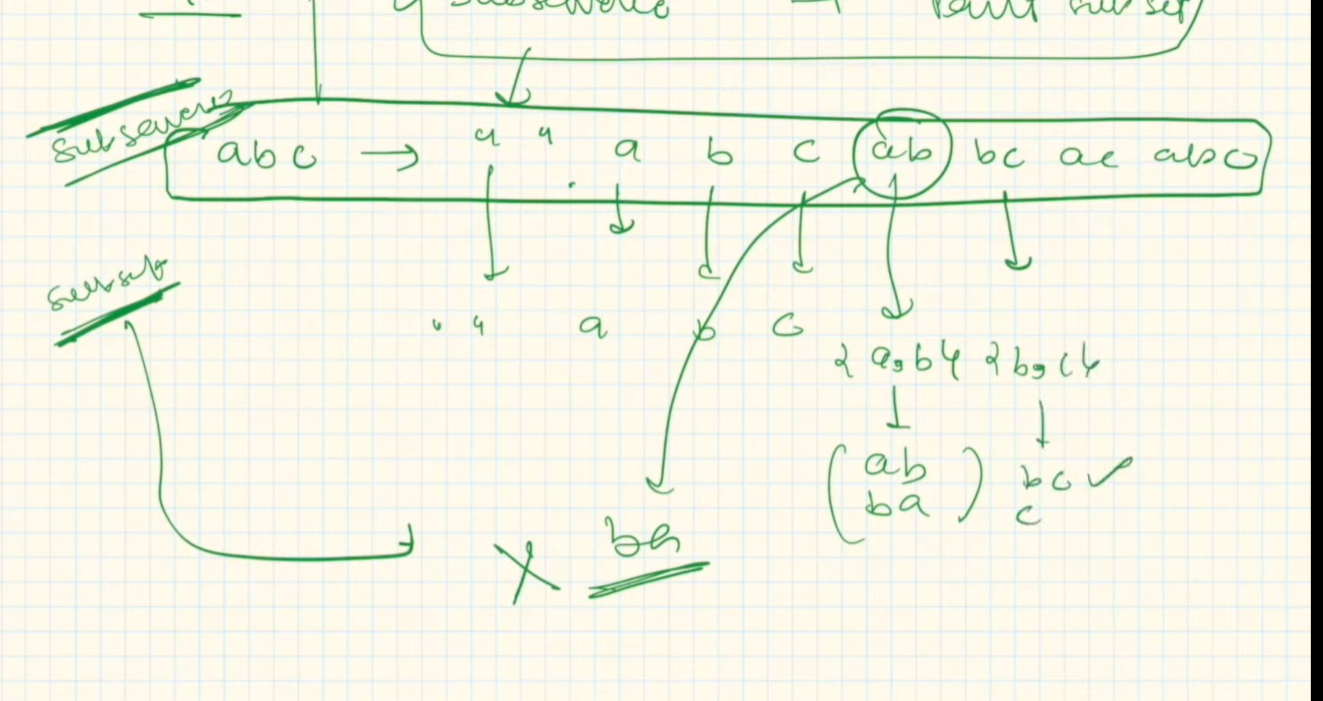 subsequence → subset
subsequence
abc → " " a b c ab bc ac abc
subset
" " a b c
{a,b} {b,c}
ab bc ✓
ba c
X ba